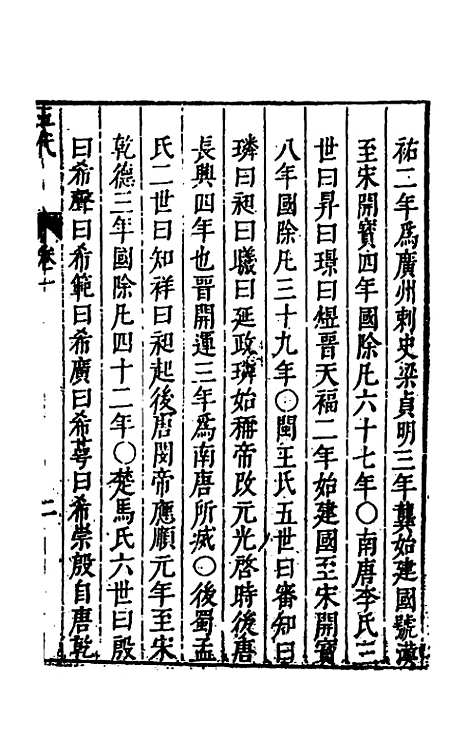 祐二年爲廣州刺史梁貞明三年龑始建國號漢
至宋開寳四年國除凡六十七年〇南唐李氏三
世曰昇曰璟曰煜晉天福二年始建國至宋開寳
八年國除凡三十九年〇閩王氏五世曰審知曰
璘曰昶曰曦曰延政璘始稱帝改元光啓時後唐
長興四年也晉開運三年爲南唐所滅〇後蜀孟
氏二世曰知祥曰昶起後唐閔帝應順元年至宋
乾德三年國除凡四十二年〇楚馬氏六世曰殷
曰希聲曰希範曰希廣曰希萼曰希崇殷自唐乾
五代
卷十
二